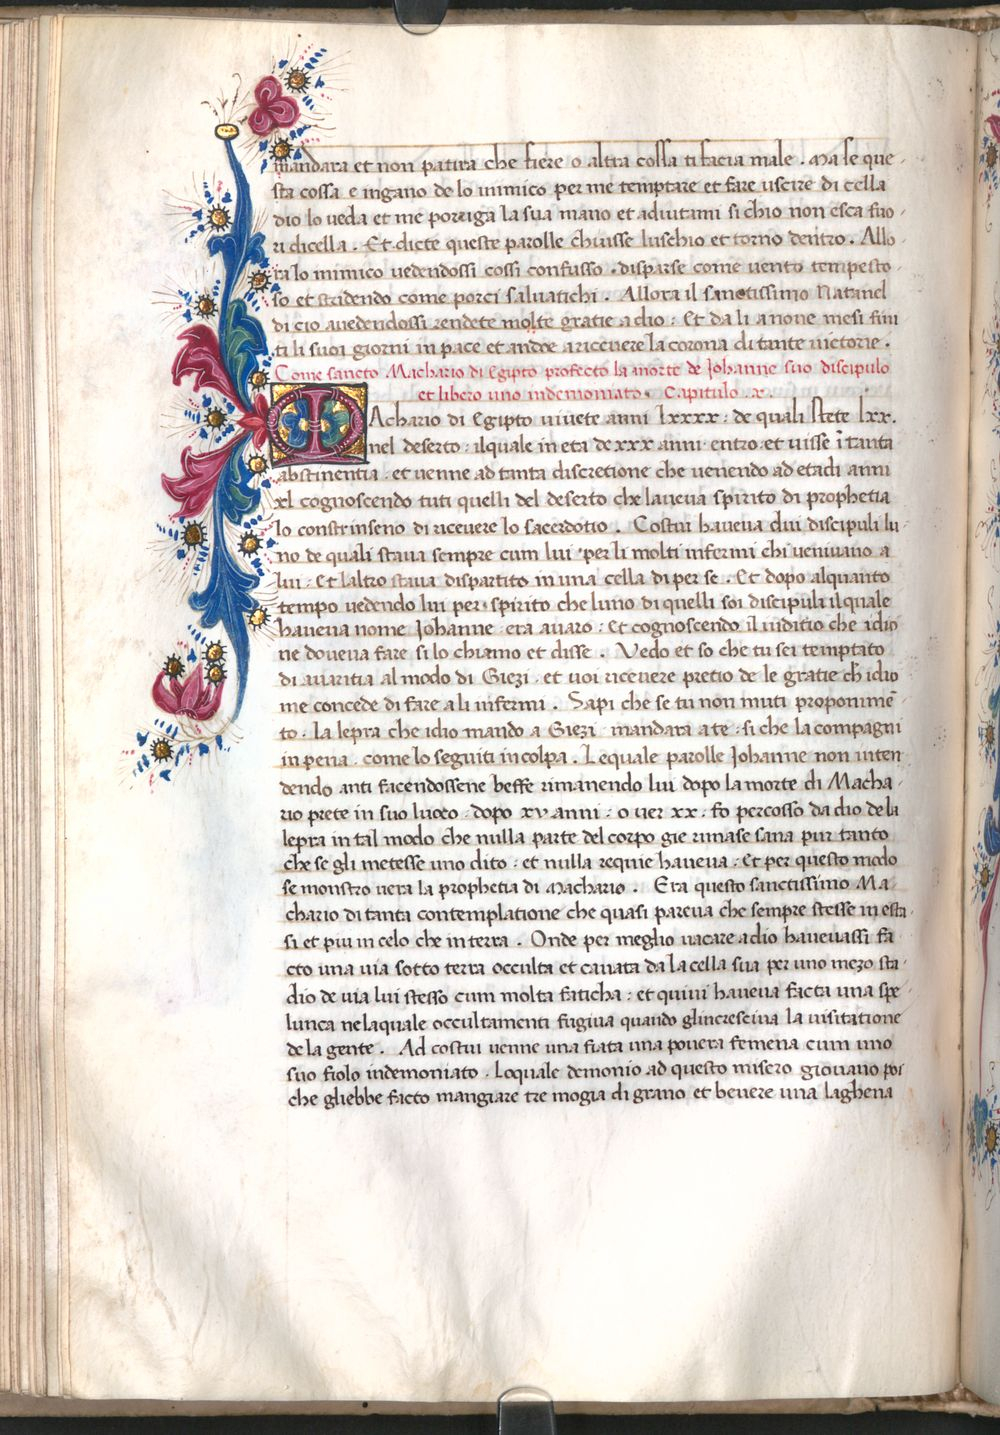 mandara et non patira che fiere o altra cossa ti facia male . Ma se que-
sta cossa e ingano de lo inimico per me temptare et fare uscire di cella
dio lo ueda et me porziga la sua mano et adiutami si chio non esca fuo-
ri di cella . Et dicte queste parolle chiusse luschio et torno dentro . Allo-
ra lo inimico uedendossi cossi confusso . disparse come uento tempesto-
so et stridendo come porci saluatichi . Allora il sanctissimo Natanel
di cio auedendossi rendete molte gratie a dio : Et da li a noue mesi fini
ti li suoi giorni in pace et andoe a riceuere la corona di tante uictorie .
Come sancto Machario di Egipto profecto la morte de Johanne suo discipulo
et libero uno indemoniato . Capitulo .x.
MAchario di Egipto uiuete anni Lxxxx : de quali stete lxx.
nel deserto : il quale in eta de xxx anni entro et uisse ī tanta
abstinentia . et uenne ad tanta discretione che uenendo ad eta di anni
xl cognoscendo tuti quelli del deserto che laueua spirito di prophetia
lo constrinseno di riceuere lo sacerdotio . Costui haueua dui discipuli lu-
no de quali staua sempre cum lui per li molti infermi chi ueniuano a
lui : et laltro staua dispartito in una cella di per se . Et dopo alquanto
tempo uedendo lui per spirito che luno di quelli soi discipuli il quale
haueua nome Johanne era auaro : Et cognoscendo il iuditio che idio
ne doueua fare si lo chiamo et disse . Vedo et so che tu sei temptato
di auaritia al modo di Giezi . et uoi riceuere pretio de le gratie ch̄ idio
me concede di fare a li infermi . Sapi che se tu non muti proponimē-
to . la lepra che idio mando a Giezi . mandara a te : si che la compagni
in pena . come lo seguiti in colpa . Lequale parolle Johanne non inten-
dendo anti facendossene beffe rimanendo lui dopo la morte di Macha-
rio prete in suo luoco . dopo xv anni : o uer xx : fo percosso da dio de la
lepra in tal modo che nulla parte del corpo gie rimase sana pur tanto
che se gli metesse uno dito : et nulla requie haueua : Et per questo modo
se monstro uera la prophetia di Machario . Era questo sanctissimo Ma-
chario di tanta contemplatione che quasi pareua che sempre stesse in esta-
si et piu in celo che in terra . Onde per meglio uacare a dio haueuassi fa
cto una uia sotto terra occulta et cauata da la cella sua per uno mezo sta-
dio de uia lui stesso cum molta faticha : et quiui haueua facta una spe-
lunca ne laquale occultamenti fugiua quando glincresciua la uisitatione
de la gente . Ad costui uenne una fiata una pouera femena cum uno
suo fiolo indemoniato . Loquale demonio ad questo misero giouano poi
che gliebbe facto mangiare tre mogia di grano et beuere una laghena